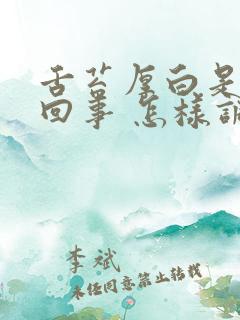 舌苔厚白是
回事 怎样调
李斌
未经同意禁止转载